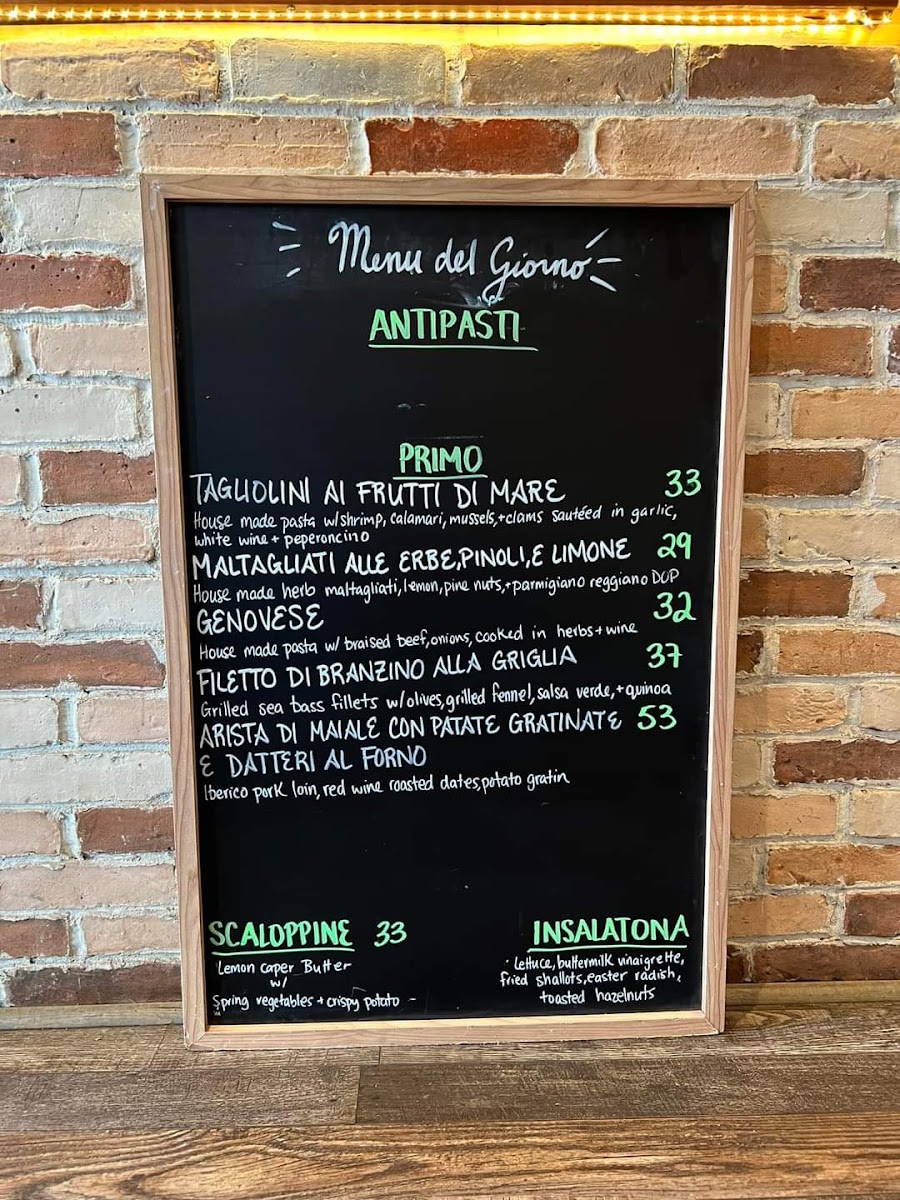 Menu del Giorno
ANTIPASTI
PRIMO
TAGLIOLINI AI FRUTTI DI MARE 33
House made pasta w/shrimp, calamari, mussels,+clams sautéed in garlic,
white wine + peperoncino
MALTAGLIATI ALLE ERBE,PINOLI,E LIMONE 29
House made herb maltagliati, lemon, pine nuts,+parmigiano reggiano DOP
GENOVESE 32
House made pasta w/ braised beef, onions, cooked in herbs + wine
FILETTO DI BRANZINO ALLA GRIGLIA 37
Grilled sea bass fillets w/olives, grilled fennel, salsa verde,+quinoa
ARISTA DI MAIALE CON PATATE GRATINATE 53
E DATTERI AL FORNO
Iberico pork loin, red wine roasted dates, potato gratin
SCALOPPINE 33
Lemon caper Butter
w/
Spring vegetables + crispy potato -
INSALATONA
· Lettuce, buttermilk vinaigrette,
fried shallots, easter radish,
toasted hazelnuts